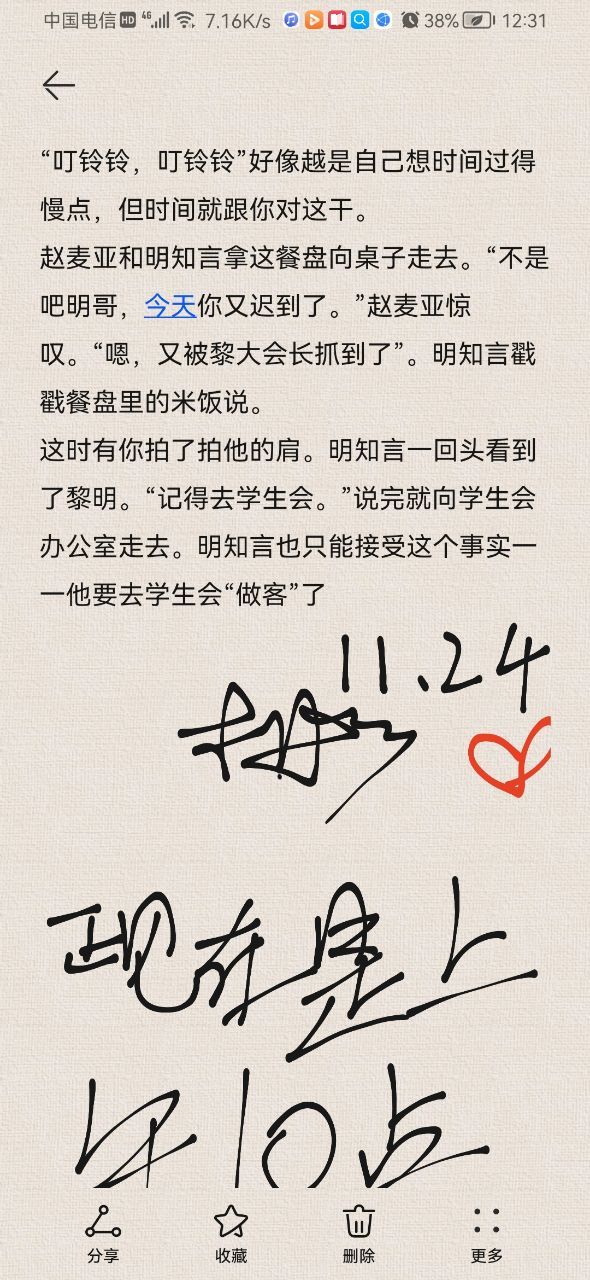 中国电信 HD 4G 7.16K/s 38% 12:31
“叮铃铃，叮铃铃”好像越是自己想时间过得
慢点，但时间就跟你对这干。
赵麦亚和明知言拿这餐盘向桌子走去。“不是
吧明哥，今天你又迟到了。”赵麦亚惊
叹。“嗯，又被黎大会长抓到了”。明知言戳
戳餐盘里的米饭说。
这时有你拍了拍他的肩。明知言一回头看到
了黎明。“记得去学生会。”说完就向学生会
办公室走去。明知言也只能接受这个事实一
一他要去学生会“做客”了
11.24
现在是上
午10点
分享 收藏 删除 更多